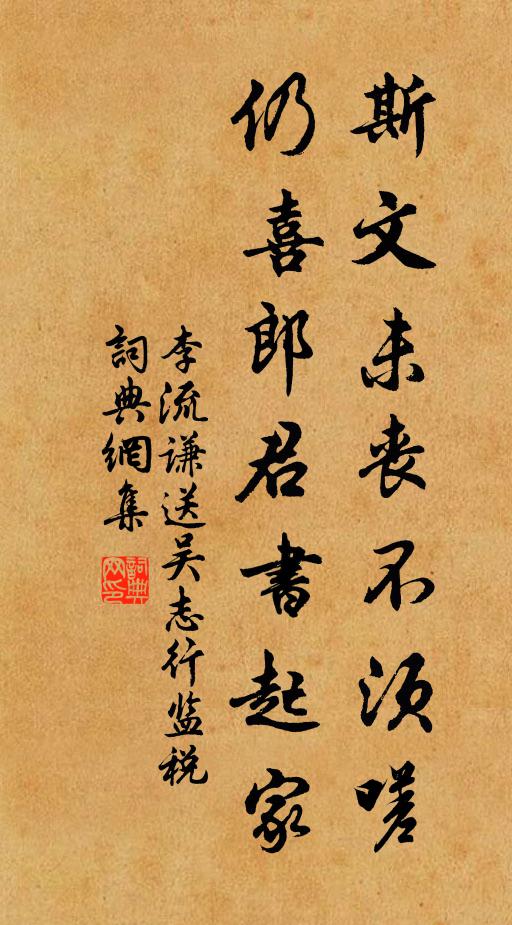 斯文未丧不须嗟
仍喜郎君書起家
李流谦送吴志行监税
詞典網集
詞典网印